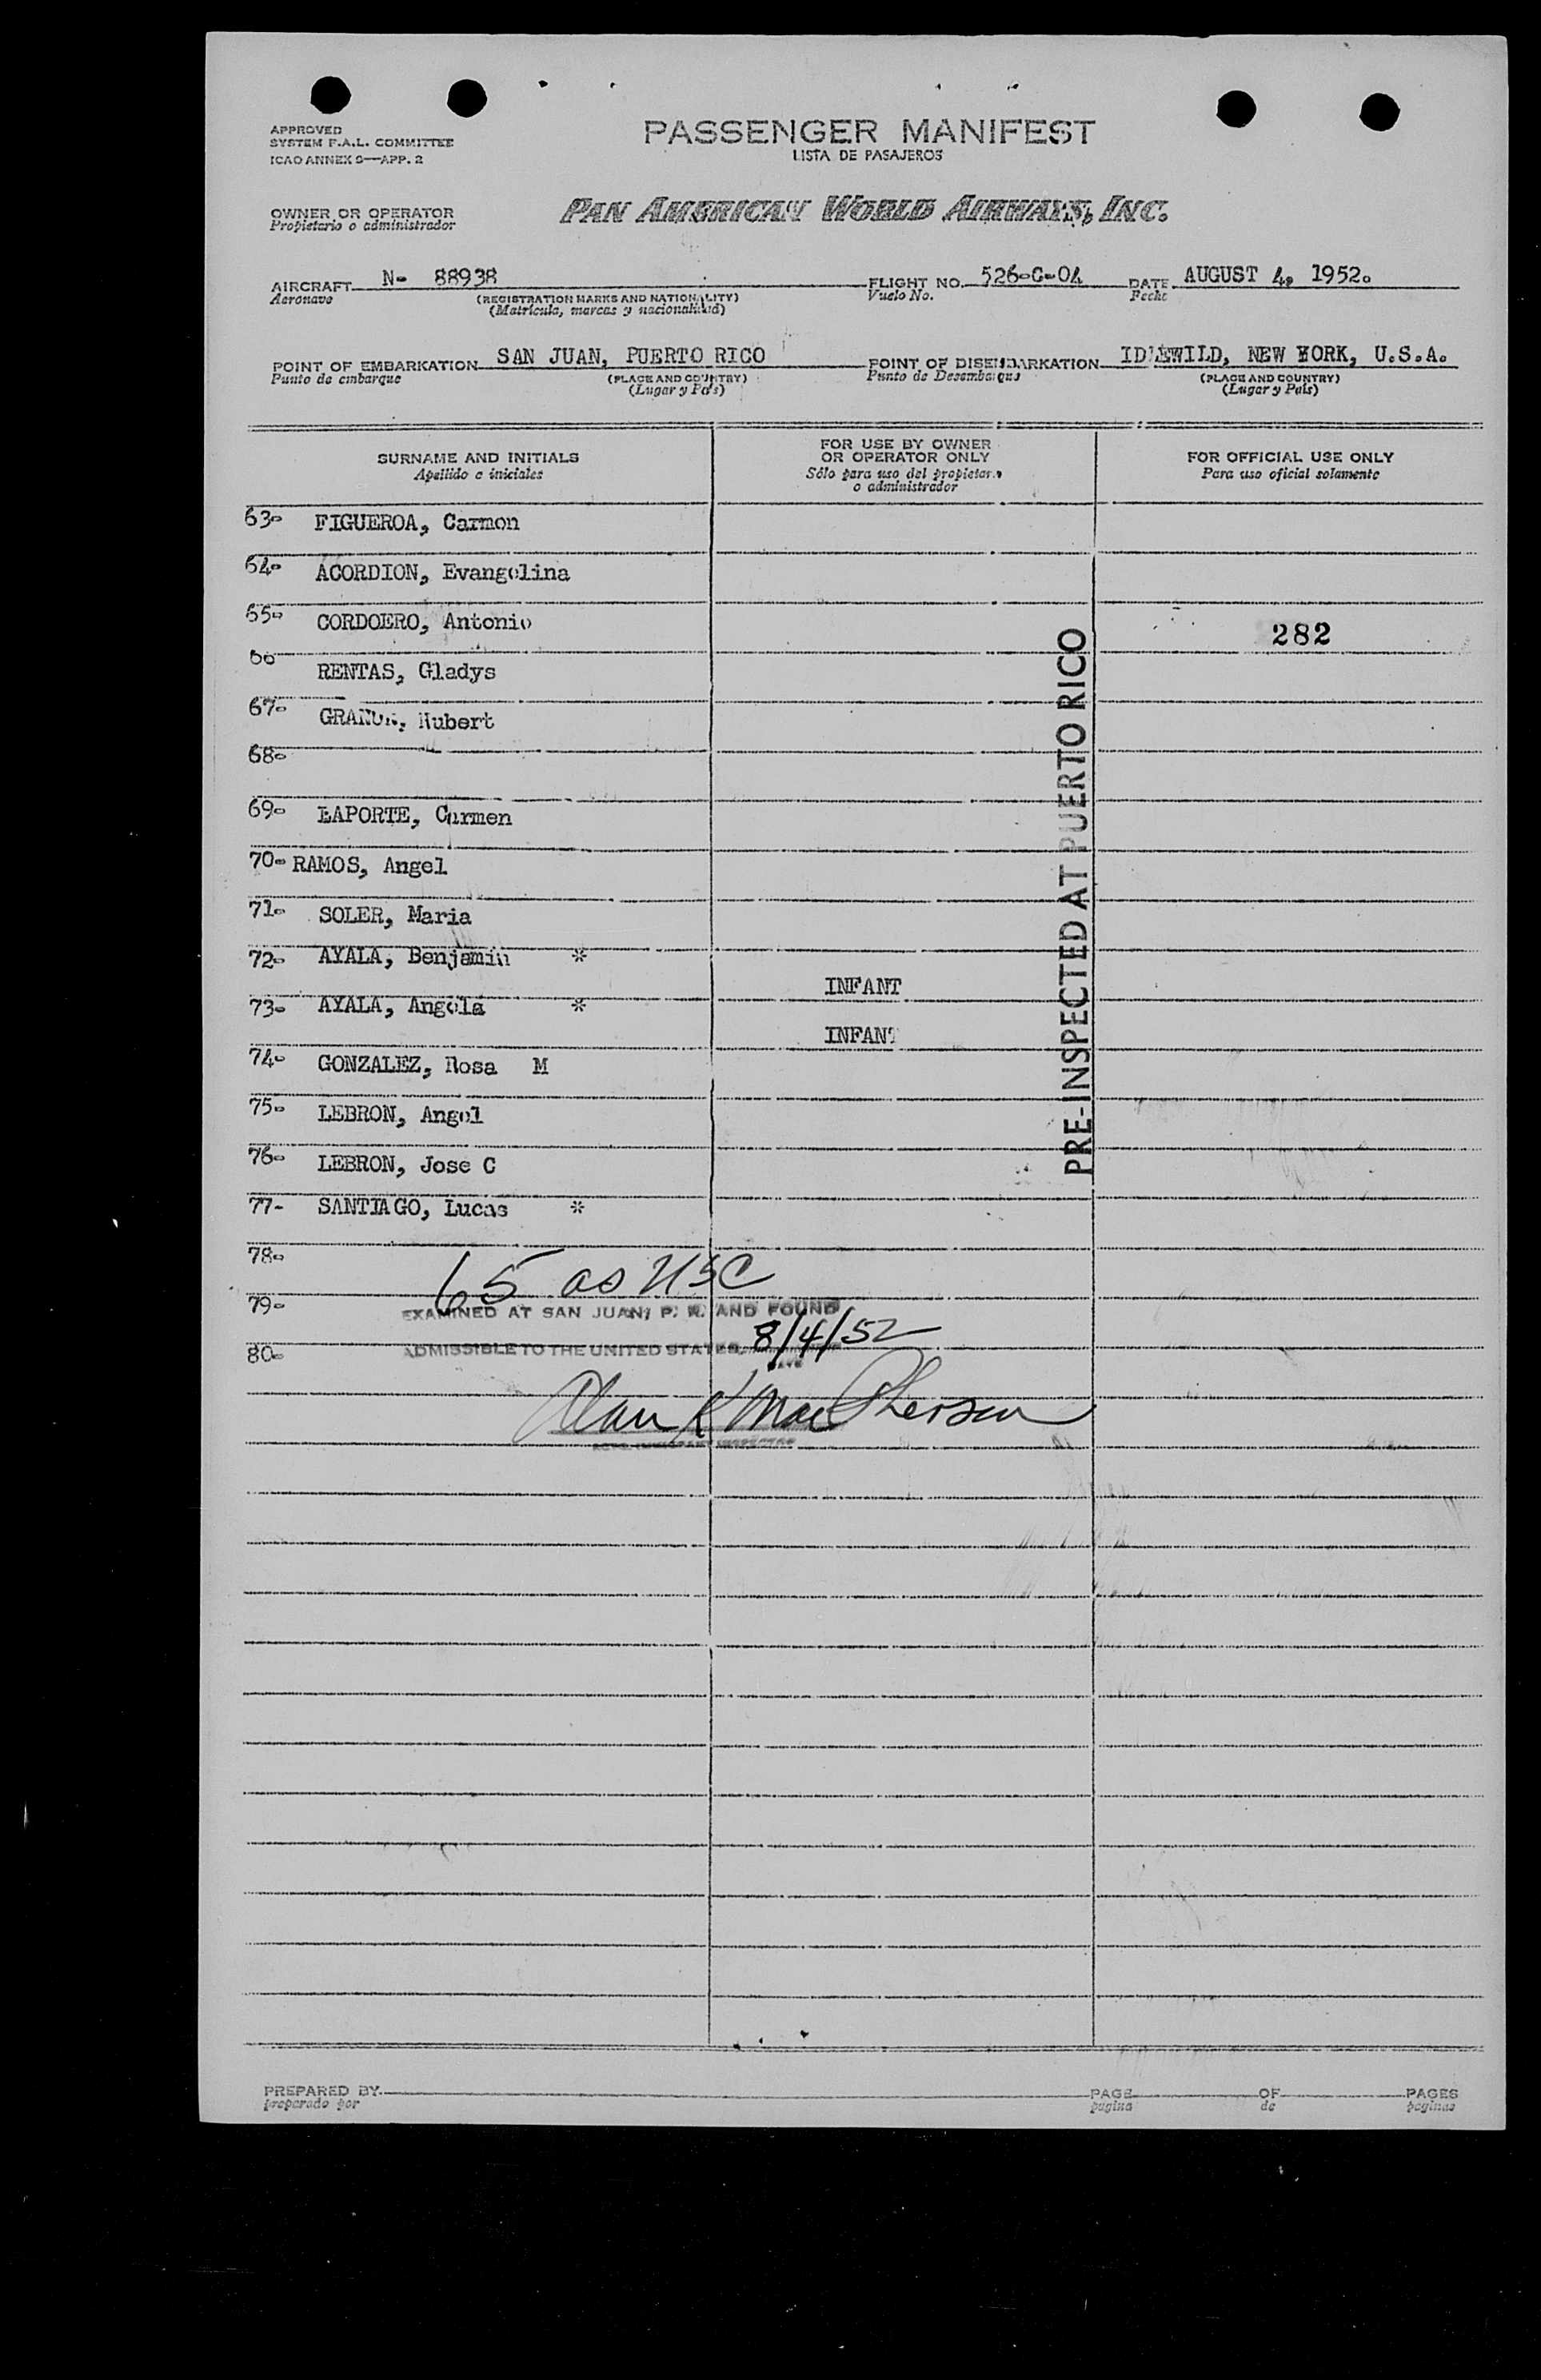 APPROVED
SYSTEM F.A.L. COMMITTEE
ICAO ANNEX 9—APP. 2
PASSENGER MANIFEST
LISTA DE PASAJEROS
OWNER OR OPERATOR
Propietario o administrador
PAN AMERICAN WORLD AIRWAYS, INC.
AIRCRAFT N- 88938
Aeronave
(REGISTRATION MARKS AND NATIONALITY)
(Matrícula, marcas y nacionalidad)
FLIGHT NO. 526-C-04
Vuelo No.
DATE AUGUST 4, 1952.
Fecha
POINT OF EMBARKATION SAN JUAN, PUERTO RICO
Punto de embarque
(PLACE AND COUNTRY)
(Lugar y País)
POINT OF DISEMBARKATION IDLEWILD, NEW YORK, U.S.A.
Punto de Desembarque
(PLACE AND COUNTRY)
(Lugar y País)
SURNAME AND INITIALS
Apellido e iniciales
FOR USE BY OWNER
OR OPERATOR ONLY
Sólo para uso del propietario
o administrador
FOR OFFICIAL USE ONLY
Para uso oficial solamente
63- FIGUEROA, Carmen
64- ACORDION, Evangelina
65- CORDOERO, Antonio
282
66 RENTAS, Gladys
67- Hubert
68-
69- LAPORTE, Carmen
70- RAMOS, Angel
71- SOLER, Maria
72- AYALA, Benjamin * INFANT
73- AYALA, Angela * INFANT
74- GONZALEZ, Rosa M
75- LEBRON, Angel
76- LEBRON, Jose C
77- SANTIAGO, Lucas *
78-
79-
80-
PRE-INSPECTED AT PUERTO RICO
65 as USC
EXAMINED AT SAN JUAN, P. R. AND FOUND
ADMISSIBLE TO THE UNITED STATES. 8/4/52
DATE
Alan K MacPherson
IMMIGRANT INSPECTOR
PREPARED BY
preparado por
PAGE OF PAGES
página de páginas